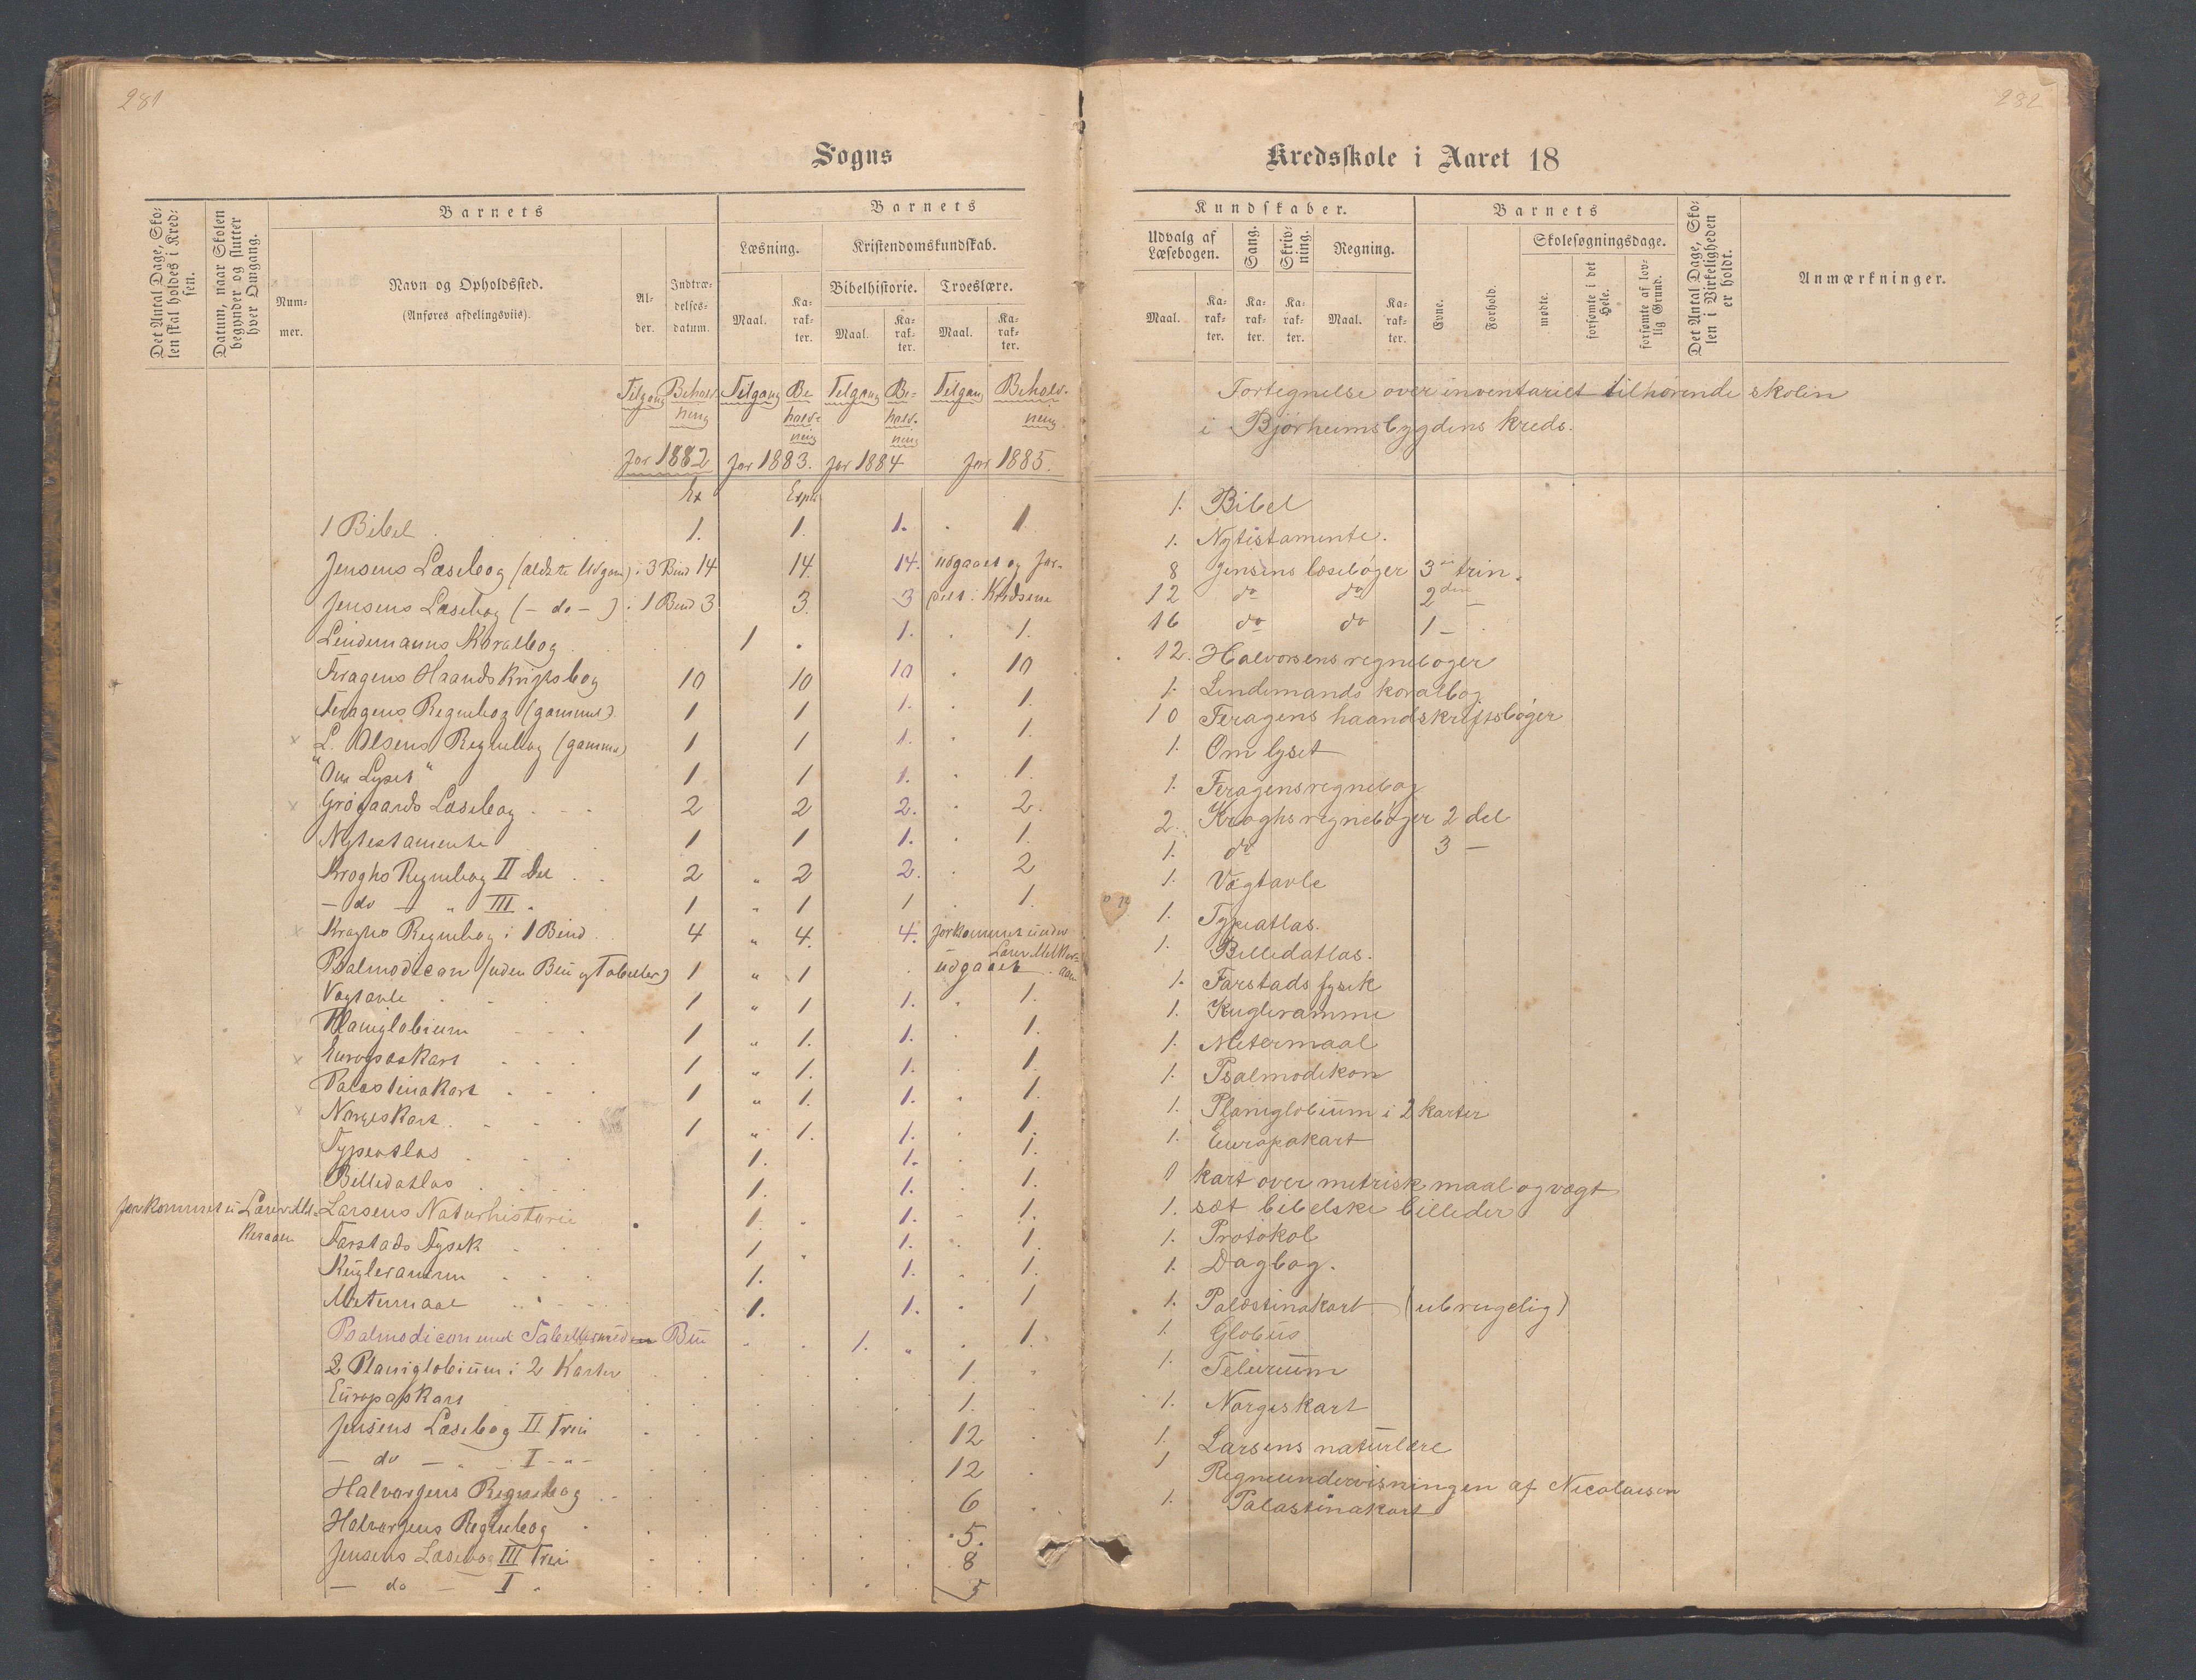 281
Sogns
Det Antal Dage, Sko-
len skal holdes i Kred-
sen.
Datum, naar Skolen
begynder og slutter
hver Omgang.
Barnets
Num-
mer.
Navn og Opholdssted.
(Anføres afdelingsviis).
Al-
der.
Indtræ-
delses-
datum.
Barnets
Læsning.
Kristendomskundskab.
Maal.
Ka-
rak-
ter.
Bibelhistorie.
Troeslære.
Maal.
Ka-
rak-
ter.
Maal.
Ka-
rak-
ter.
Tilgang Beholdning Tilgang Beholdning Tilgang Beholdning Tilgang Beholdning
for 1882 for 1883. for 1884 for 1885.
Ex Expl
1 Bibel 1. 1. 1. 1
Jensens Læsebog (ældste Udgave) i 3 Bind 14 14. 14. udgaaet og for-
Jensens Læsebog (- do -) i 1 Bind 3 3. 3 delt i Kredsene
Lindemanns Koralbog 1 1. 1.
Feragens Haandskriftsbog 10 10 10 10
Feragens Regnebog (gammel) 1 1 1. 1.
L. Olsens Regnebog (gammel) 1 1 1. 1.
"Om Lyset" 1 1 1. 1.
Grøgaards Læsebog 2 2 2. 2.
Nytestamente 1 1 1. 1.
Kroghs Regnebog II Del 2 " 2 2. 2
- do - " III " 1 " 1 1 1.
Kroghs Regnebog i 1 Bind 4 " 4. 4. forkommet under
Lærer Melkeraaen
Psalmodicon (uden Bue og Tabeller) 1 " 1 udgaaet
Vægtavle 1 " 1 1. 1.
Planiglobium 1 " 1. 1. 1.
Europaskart 1 " 1. 1. 1
Palæstinakart 1 " 1. 1. 1.
Norgeskart 1 " 1. 1. 1.
Typeatlas 1. 1. 1.
Billedatlas 1. 1. 1.
forkommet u Lærer Mel-
keraaen
Larsens Naturhistorie 1. 1. 1.
Farstads Fysik 1 1. 1.
Kugleramm 1. 1. 1.
Metermaal 1. 1. 1
Psalmodicon med Tabeller med Bue 1. " 1.
2 Planiglobium i 2 Karter 1.
Europaskart 1.
Jensens Læsebog II Trin 12
- do - " - I - " - 12
Halvorsens Regnebog 6
Halvorsens Regnebog 5.
Jensens Læsebog III Trin 8
- do - I " 5
232
Kredsskole i Aaret 18
Kundskaber.
Udvalg af
Læsebogen.
Sang.
Skriv-
ning.
Regning.
Maal.
Ka-
rak-
ter.
Ka-
rak-
ter.
Ka-
rak-
ter.
Maal.
Ka-
rak-
ter.
Barnets
Evne.
Forhold.
Skolesøgningsdage.
mødte.
forsømte i det
Hele.
forsømte af lov-
lig Grund.
Det Antal Dage, Sko-
len i Virkeligheden
er holdt.
Anmærkninger.
Fortegnelse over inventariet tilhørende skolen
i Bjørheimsbygdens kreds.
1. Bibel
1. Nytistamente.
8 Jensens læsebøger 3die trin.
12 do do 2den -
16 do do 1 - .
12. Halvorsens regnebøger
1. Lindemands koralbog
10 Feragens haandskriftsbøger
1. Om lyset
1. Feragens regnebog
2. Kroghs regnebøger 2 del
1. do 3 -
1. Vægtavle
1. Typeatlas.
1. Billedatlas.
1. Farstads fysik
1. Kugleramme
1. Metermaal
1. Psalmodikon
1. Planiglobium i 2 karter
1. Europakart
1 kart over metrisk maal og vægt
1. sæt bibelske billeder
1. Protokol
1. Dagbog.
1. Palæstinakart (ubrugelig)
1. Globus
1. Telurium
1. Norgeskart
1. Larsens naturlære
1 Regneundervisningen af Nicolaisen
1. Palæstinakart